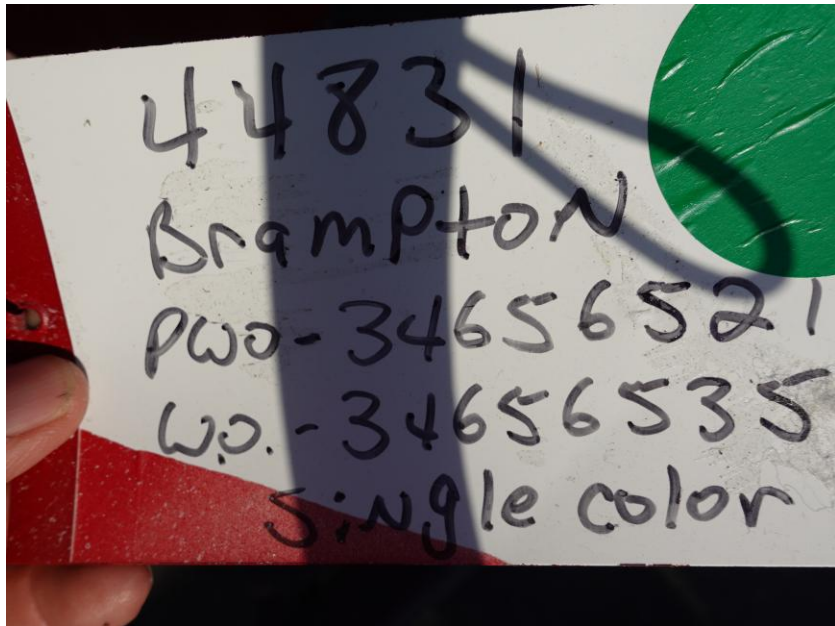 44831
BramPtoN
PWO-34656521
W.O.-34656535
SiNgle color